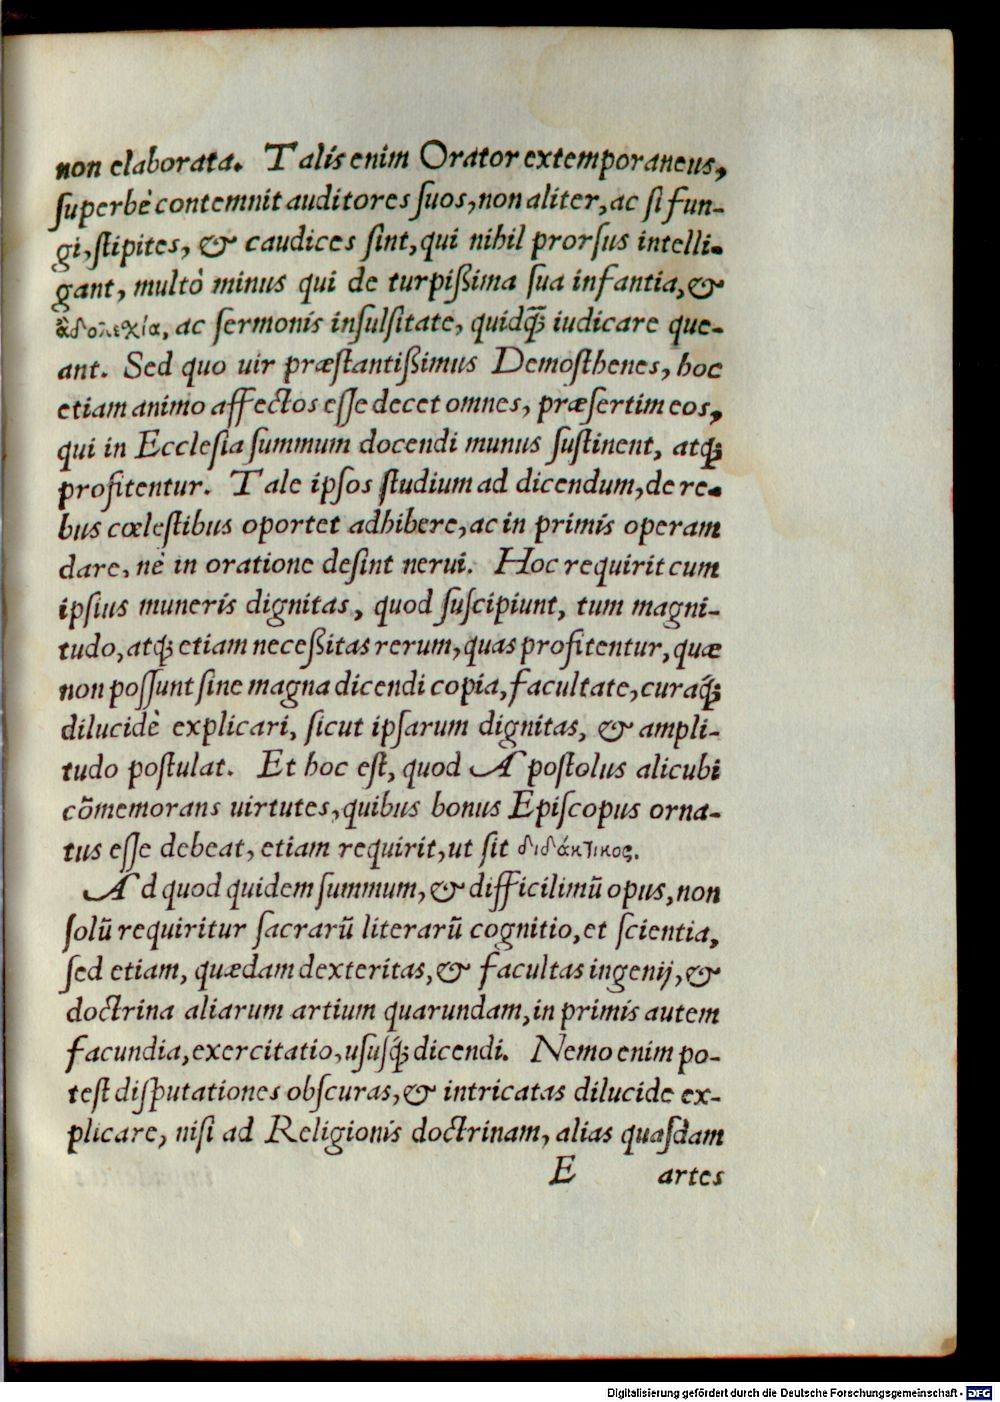 non elaborata. Talis enim Orator extemporaneus,
ſuperbè contemnit auditores ſuos, non aliter, ac ſi fun-
gi, ſtipites, & caudices ſint, qui nihil prorſus intelli-
gant, multò minus qui de turpißima ſua infantia, &
ἀδολεχία, ac ſermonis inſulſitate, quidq́; iudicare que-
ant. Sed quo uir præſtantißimus Demoſthenes, hoc
etiam animo affectos eſſe decet omnes, præſertim eos,
qui in Eccleſia ſummum docendi munus ſuſtinent, atq́;
profitentur. Tale ipſos ſtudium ad dicendum, de re-
bus cœleſtibus oportet adhibere, ac in primis operam
dare, nè in oratione deſint nerui. Hoc requirit cum
ipſius muneris dignitas, quod ſuſcipiunt, tum magni-
tudo, atq́; etiam neceßitas rerum, quas profitentur, quæ
non poſſunt ſine magna dicendi copia, facultate, curaq́;
dilucidè explicari, ſicut ipſarum dignitas, & ampli-
tudo poſtulat. Et hoc eſt, quod Apoſtolus alicubi
cõmemorans uirtutes, quibus bonus Epiſcopus orna-
tus eſſe debeat, etiam requirit, ut ſit διδάκτικος.
Ad quod quidem ſummum, & difficilimũ opus, non
ſolũ requiritur ſacrarũ literarũ cognitio, et ſcientia,
ſed etiam, quædam dexteritas, & facultas ingenij, &
doctrina aliarum artium quarundam, in primis autem
facundia, exercitatio, uſusq́; dicendi. Nemo enim po-
teſt diſputationes obſcuras, & intricatas dilucide ex-
plicare, niſi ad Religionis doctrinam, alias quaſdam
E artes
Digitalisierung gefördert durch die Deutsche Forschungsgemeinschaft - DFG